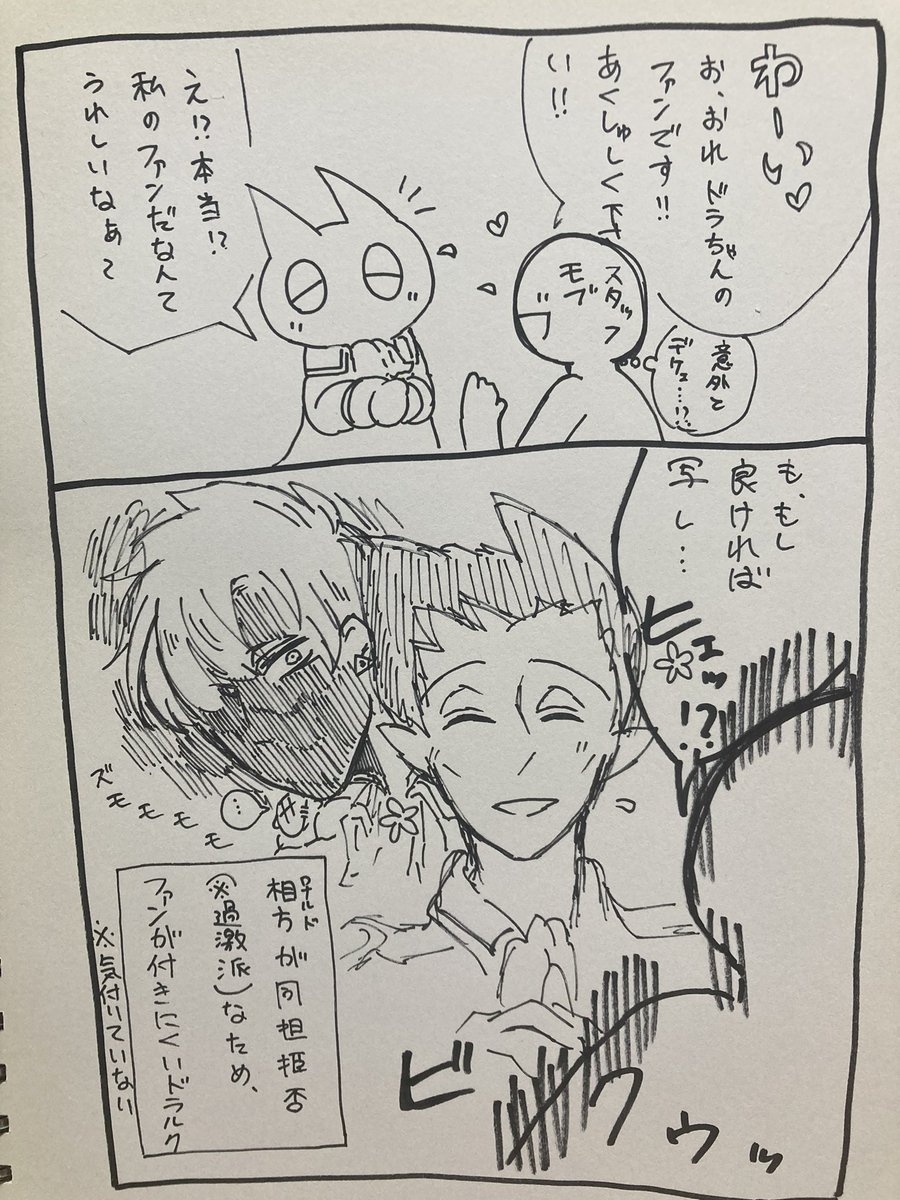 わーい♡
お、おれドラちゃんの
ファンです!!
あくしゅして下さ
い!!
スタッフ
モブ
意外と
デケェ…!?
え!?本当!?
私のファンだなんて
うれしいなぁ〜
も、もし
良ければ
写し…
ピェッ!?
ズモモモモ
ビクゥッ
相方が同担拒否
ロナルド
(※過激派)なため、
ファンが付きにくいドラルク
※気付いていない